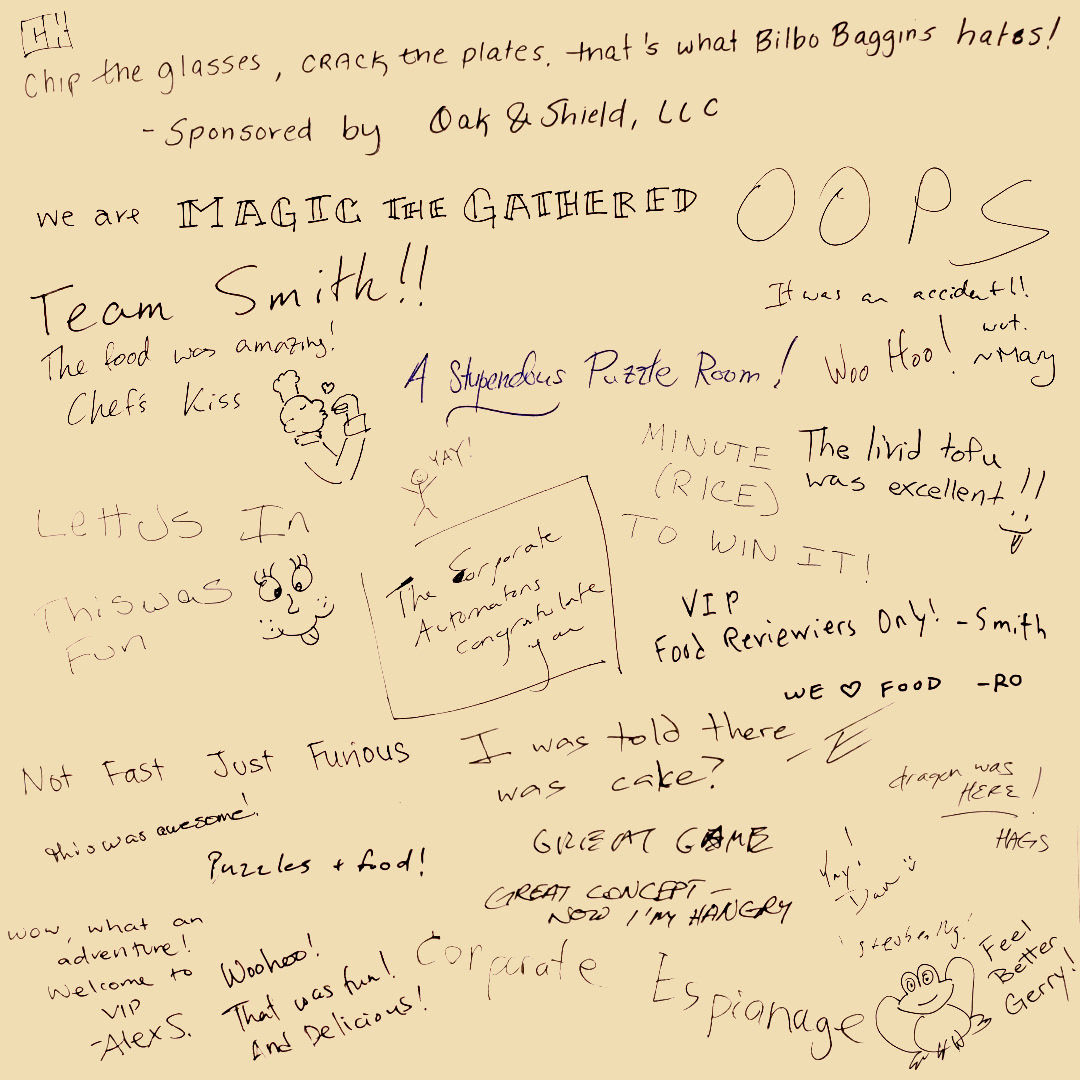 Hi!
Chip the glasses, CRACK the plates. that's what Bilbo Baggins hates!
- Sponsored by Oak & Shield, LLC
we are MAGIC THE GATHERED
OOPS
It was an accident!!
wut.
~Mary
Team Smith!!
The food was amazing!
Chef's Kiss
A Stupendous Puzzle Room!
Woo Hoo!
YAY!
MINUTE
(RICE)
TO WIN IT!
The livid tofu
was excellent!!
LettUs In
This was
Fun
The Corporate
Automatons
congratulate
you
VIP
Food Reviewiers Only! -Smith
WE ♡ FOOD -RO
Not Fast Just Furious
I was told there
was cake?
dragon was
HERE!
HAGS
this was awesome!
Puzzles + food!
GREAT GAME
GREAT CONCEPT -
NOW I'M HANGRY
Yay!
-Dan
Wow, what an
adventure!
Welcome to
VIP
-Alex S.
Woohoo!
That was fun!
And Delicious!
Corporate Espianage
Feel
Better
Gerry!